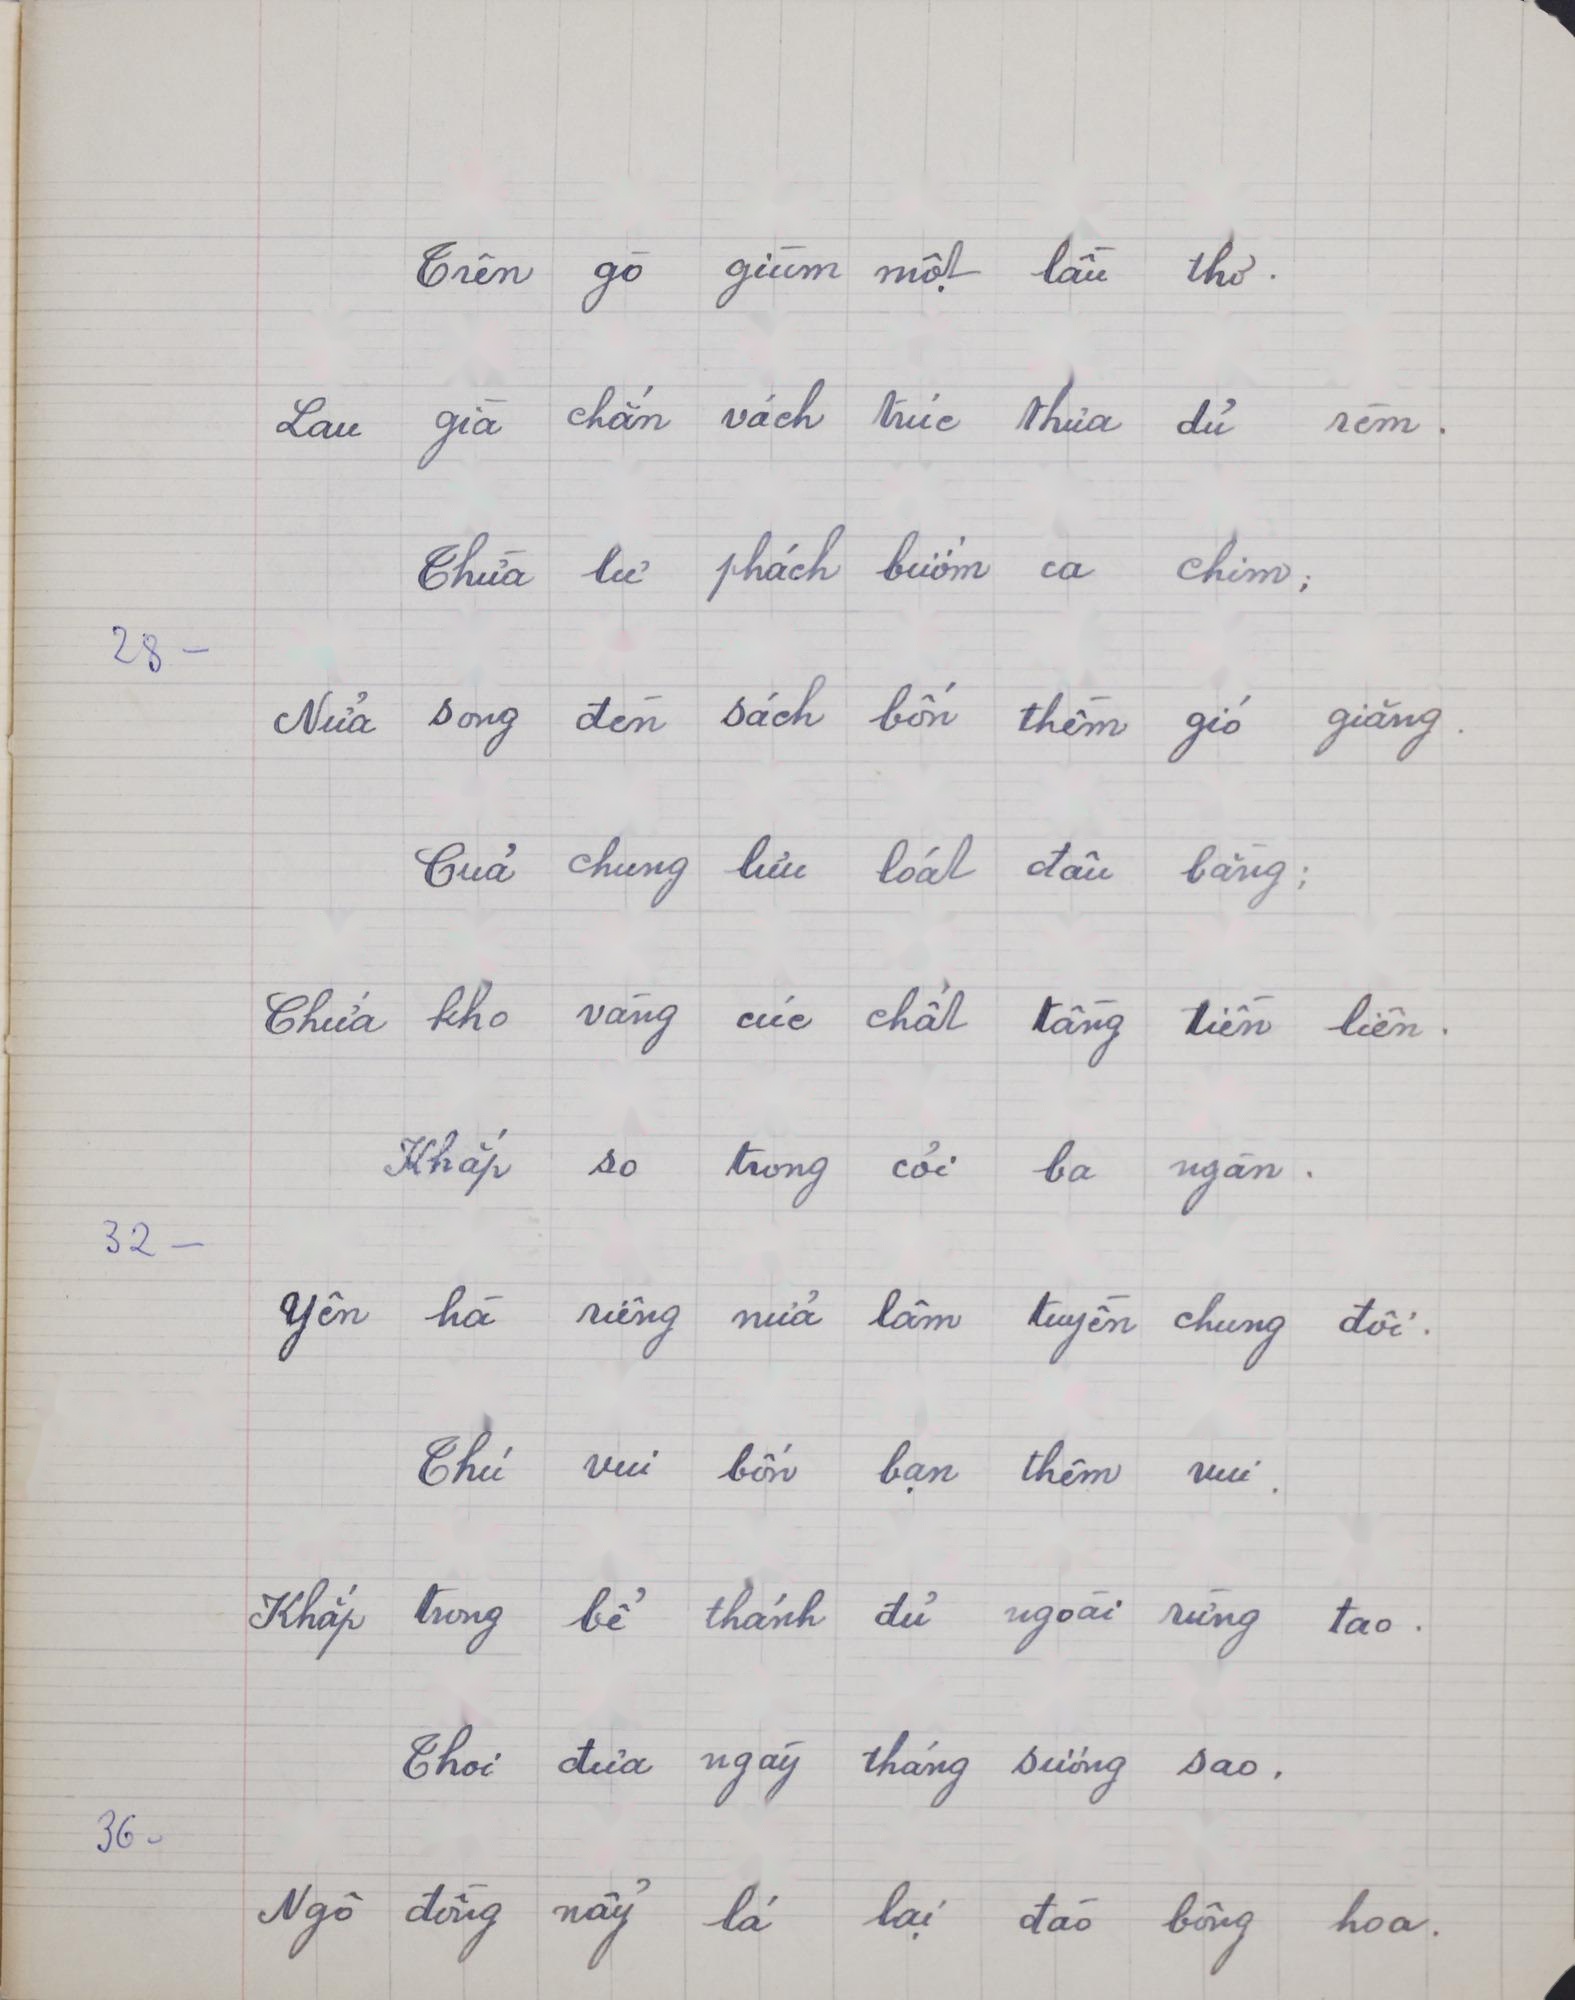 Trên gò giùm một lầu thơ.
Lau già chắn vách trúc thưa đủ rèm.
Thừa lư phách bướm ca chim;
28-
Nửa song đèn sách bốn thềm gió giăng.
Cuả chung lưu loát đâu bằng;
Chứa kho vàng cúc chất tầng tiền liên.
Khắp so trong cỏi ba ngàn.
32-
Yên hà riêng nửa lâm tuyền chung đôi.
Thú vui bốn bạn thêm vui.
Khắp trong bể thánh đủ ngoài rừng tao.
Thoi đưa ngày tháng sương sao.
36-
Ngô đồng nẩy lá lại đào bông hoa.